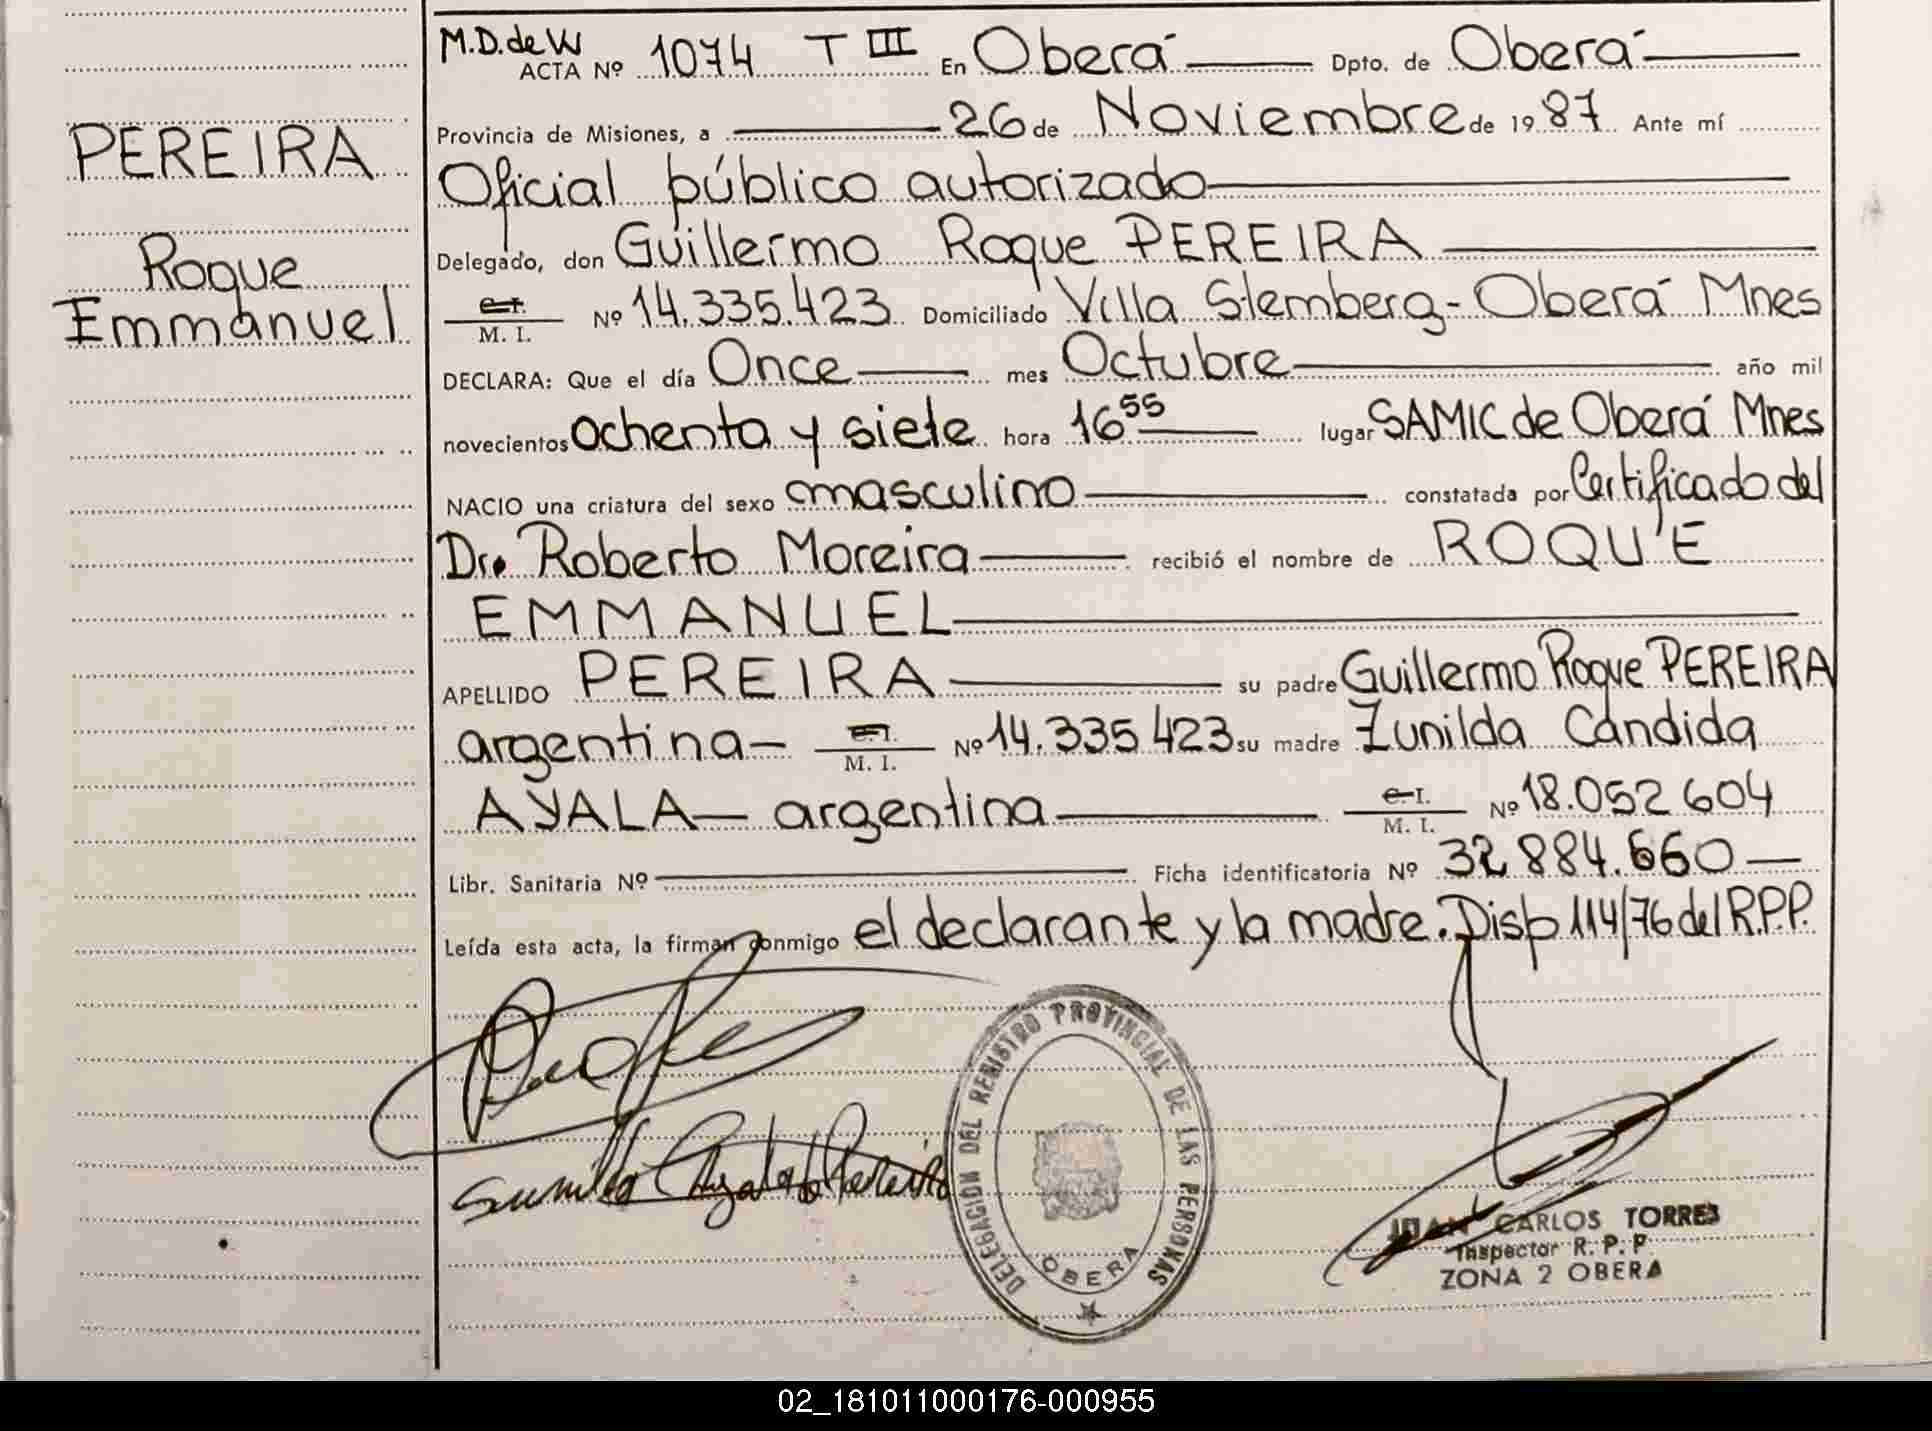 PEREIRA
Roque
Emmanuel
M.D.de W
ACTA Nº 1074 T III En Oberá Dpto. de Oberá
Provincia de Misiones, a 26 de Noviembre de 1987 Ante mí
Oficial público autorizado
Delegado, don Guillermo Roque PEREIRA
C.I.
M. I. Nº 14.335.423 Domiciliado Villa Stemberg - Oberá Mnes
DECLARA: Que el día Once mes Octubre año mil
novecientos ochenta y siete hora 16 55 lugar SAMIC de Oberá Mnes
NACIO una criatura del sexo masculino constatada por Certificado del
Dr. Roberto Moreira recibió el nombre de ROQUE
EMMANUEL
APELLIDO PEREIRA su padre Guillermo Roque PEREIRA
argentina - C.I.
M. I. Nº 14.335 423 su madre Zunilda Candida
AYALA - argentina C.I.
M. I. Nº 18.052 604
Libr. Sanitaria Nº Ficha identificatoria Nº 32 884.660 -
Leída esta acta, la firman conmigo el declarante y la madre. Disp 114/76 del R.P.P.
DELEGACION DEL REGISTRO PROVINCIAL DE LAS PERSONAS
OBERA
JUAN CARLOS TORRES
Inspector R. P. P.
ZONA 2 OBERA
02_181011000176-000955